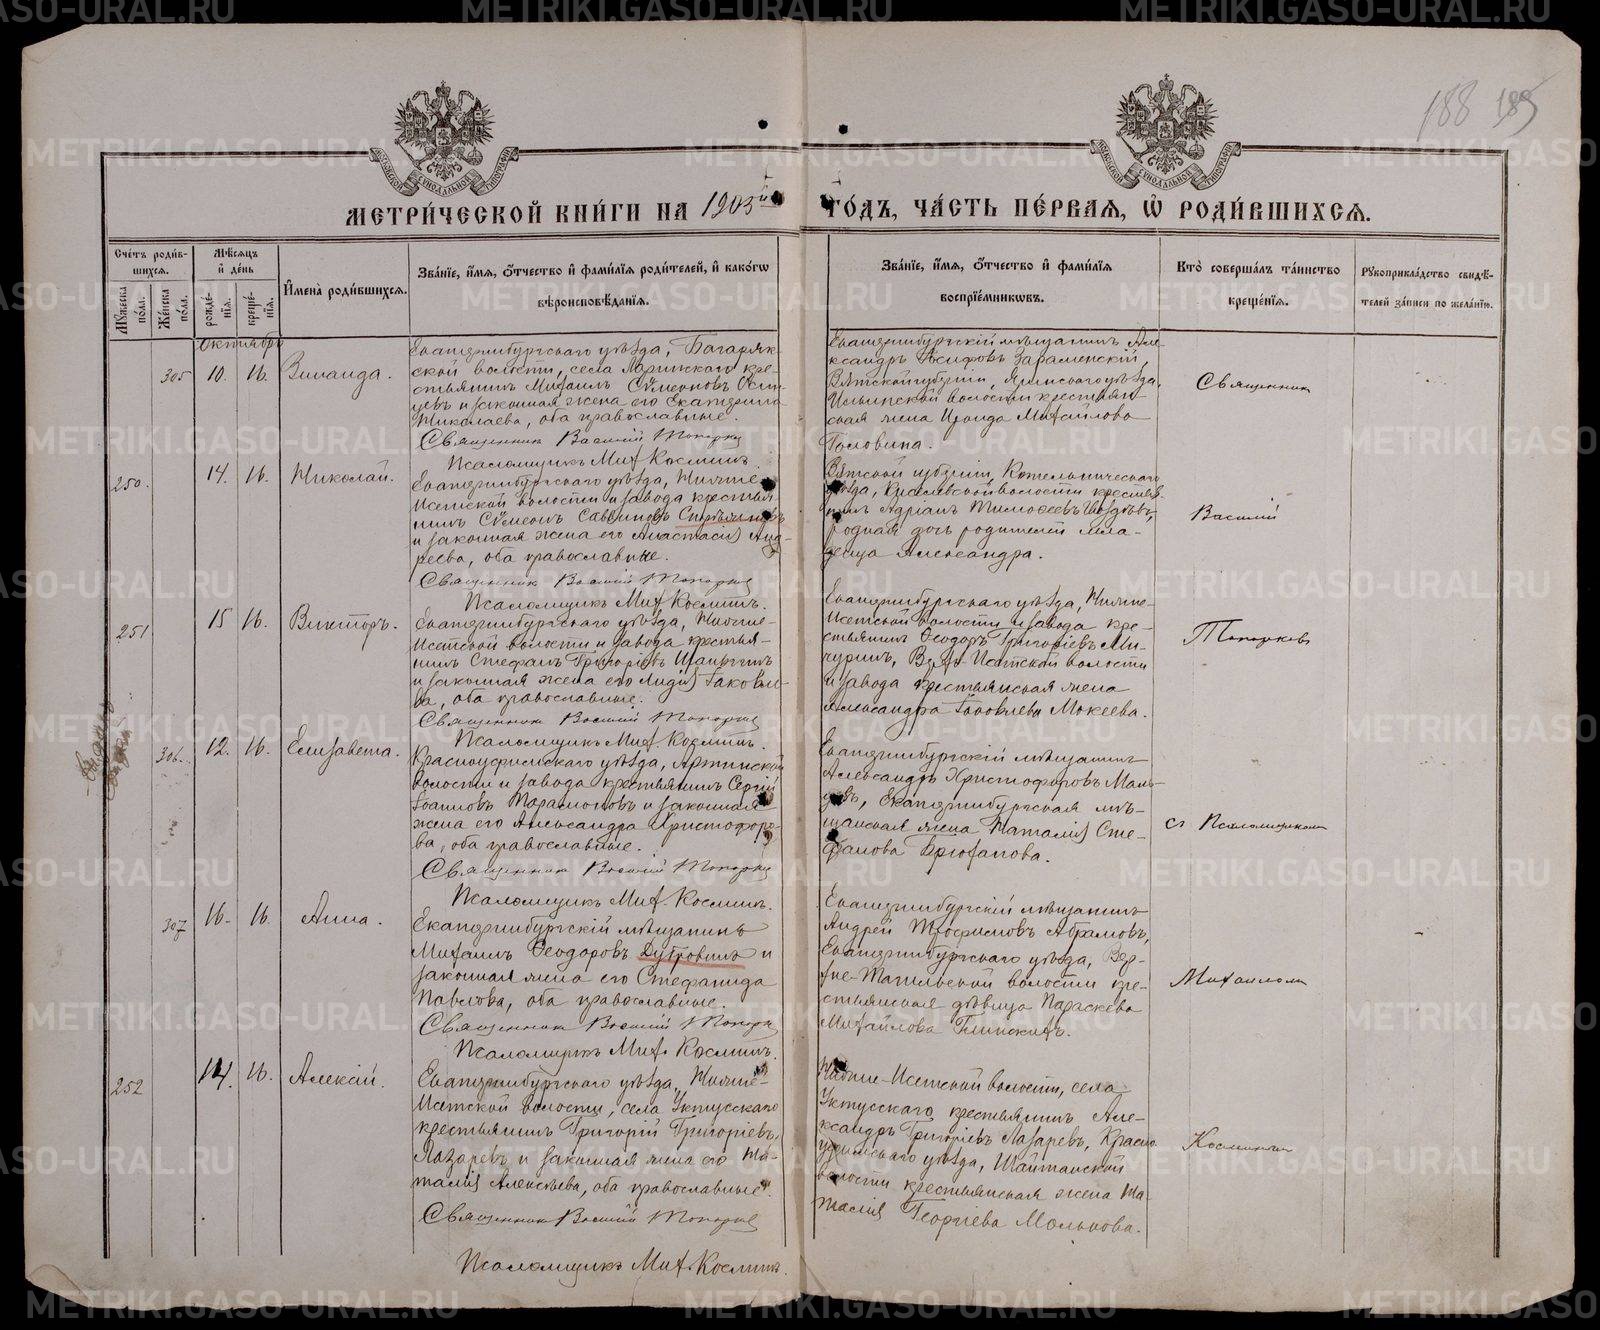 188 189
МОСКОВСКОЙ СѴНОДАЛЬНОЙ ТИПОГРАФІИ
МОСКОВСКОЙ СѴНОДАЛЬНОЙ ТИПОГРАФІИ
МЕТРИ́ЧЕСКОЙ КНИ́ГИ НА 1903й ГО́ДЪ, ЧА́СТЬ ПЕ́РВАЯ, Ѡ҆ РОДИ́ВШИХСЯ.
Сче́тъ роди́в-
шихся.
Мꙋ́жеска по́ла.
Же́нска по́ла.
Мѣ́сяцъ и҆ де́нь
рожде́-
нїя.
креще́-
нїя.
И҆мена̀ роди́вшихся.
Зва́нїе, и҆́мя, ѻ҆́тчество и҆ фами́лїя роди́телей, и҆ како́гѡ
вѣроисповѣ́данїя.
Зва́нїе, и҆́мя, ѻ҆́тчество и҆ фами́лїя
воспрїе́мникѡвъ.
Кто̀ соверша́лъ та́инство
креще́нїя.
Рꙋкоприкла́дство свидѣ́-
телей за́писи по жела́нїю.
Октябрь
305 10. 16. Зинаида.
Екатеринбургскаго уѣзда, Багаряк-
ской волости, села Ларинскаго кре-
стьянинъ Михаилъ Сѵмеоновъ
и законная жена его Екатерина
Николаева, оба православные.
Священник Василій Топорков
Псаломщикъ Мих. Косминъ.
Екатеринбургскій мѣщанинъ Але-
ксандръ Іосифовъ
Вятской губерніи, Яранскаго уѣзда,
волости крестьян-
ская жена Ираида Михайлова
Головина.
Священник
250. 14. 16. Николай.
Екатеринбургскаго уѣзда, Нижне-
Исетской волости и завода крестья-
нинъ Сѵмеонъ Саввиновъ
и законная жена его Анастасія Анд-
реева, оба православные.
Священник Василій Топорков
Псаломщикъ Мих. Косминъ.
Вятской губерніи, Котельническаго
уѣзда, волости крестья-
нинъ Адріанъ Тимоѳеевъ
родная дочь родителей мла-
денца Александра.
Василій
251 15 16. Викторъ.
Екатеринбургскаго уѣзда, Нижне-
Исетской волости и завода крестья-
нинъ Стефанъ Григоріевъ
и законная жена его Лидія Іаковле-
ва, оба православные.
Священник Василій Топорков
Псаломщикъ Мих. Косминъ.
Екатеринбургскаго уѣзда, Нижне-
Исетской волости и завода кре-
стьянинъ Ѳеодоръ Григоріевъ Ми-
чуринъ, Верх-Исетской волости
и завода крестьянская жена
Александра Іаковлева Мокеева.
Топорков
306. 12. 16. Елизавета.
Красноуфимскаго уѣзда, Артинской
волости и завода крестьянинъ Сергій
Іоанновъ Парамоновъ и законная
жена его Александра Христофоро-
ва, оба православные.
Священник Василій Топорков
Псаломщикъ Мих. Косминъ.
Екатеринбургскій мѣщанинъ
Александръ Христофоровъ Маль-
цевъ, Екатеринбургская мѣ-
щанская жена Наталія Сте-
фанова Брюханова.
съ Псаломщиком
307 16. 16. Анна.
Екатеринбургскій мѣщанинъ
Михаилъ Ѳеодоровъ Дубровинъ и
законная жена его Стефанида
Павлова, оба православные.
Священник Василій Топорков
Псаломщикъ Мих. Косминъ.
Екатеринбургскій мѣщанинъ
Андрей Трофимовъ Абрамовъ,
Екатеринбургскаго уѣзда, Верх-
не-Тагильской волости кре-
стьянская дѣвица Параскева
Михайлова Глинскихъ.
Михаилом
252 14. 16. Алексій.
Екатеринбургскаго уѣзда, Нижне-
Исетской волости, села Уктусскаго
крестьянинъ Григорій Григоріевъ
Лазаревъ и законная жена его На-
талія Алексѣева, оба православные.
Священник Василій Топорков
Псаломщикъ Мих. Косминъ.
Нижне-Исетской волости, села
Уктусскаго крестьянинъ Але-
ксандръ Григоріевъ Лазаревъ, Красно-
уфимскаго уѣзда, Шайтанской
волости крестьянская жена На-
талія Георгіева Малькова.
Косминым
METRIKI.GASO-URAL.RU